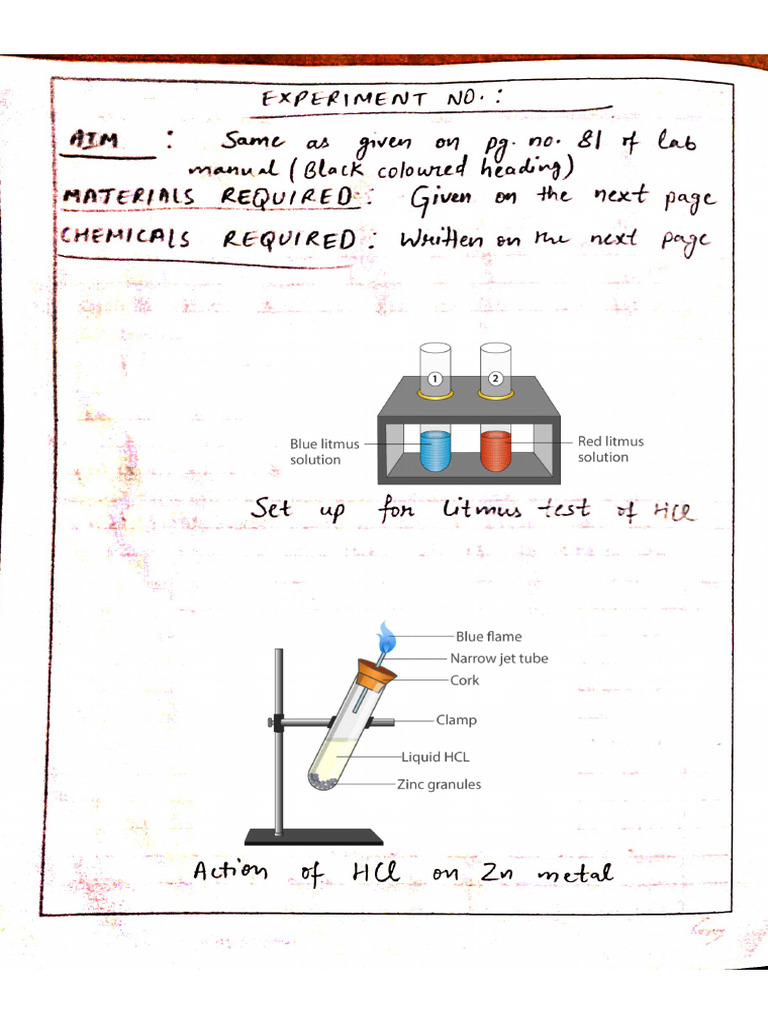 EXPERIMENT NO.:
AIM : Same as given on pg. no. 81 of lab
manual (Black coloured heading)
MATERIALS REQUIRED: Given on the next page
CHEMICALS REQUIRED: Written on the next page
1 2
Blue litmus
solution
Red litmus
solution
Set up for litmus test of HCl
Blue flame
Narrow jet tube
Cork
Clamp
Liquid HCL
Zinc granules
Action of HCl on Zn metal